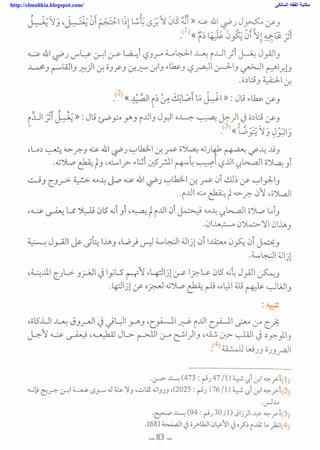 http://elmalikia.blogspot.com
مكتبة الفقه المالكي
وعن مكحول رضي الله عنه « أنه كان لا يرى بأسا إذا احتجم أن يغتسل، ولا يغسل
أثر محاجمه إلا أن يكون عليها دم » (1)
والقول بغسل أثر الدم بعد الحجامة مروي أيضا عن ابن عباس رضي الله عنه
وإبراهيم النخعي والحسن البصري وعطاء وابن سيرين وعروة بن الزبير والقاسم ومحمد
بن الحنفية وقتادة.
وعن عطاء قال : « اغسل ما أصابك من دم الصيد » (2)
وعن قتادة في الرجل يصيب جسده البول والدم وهو متوضئ قال : « يغسل أثر الدم
والبول ولا يتوضأ » (3)
وقد يدعي بعضهم طهارته بصلاة عمر بن الخطاب رضي الله عنه وجرحه يثعب دما،
أو بصلاة الصحابي الذي أصيب بأسهم المشركين أثناء حراسته، ولم يقطع صلاته.
والجواب عن ذلك أن عمر بن الخطاب رضي الله عنه صلى بدمه خشية خروج وقت
الصلاة، لأن جرحه لم ينقطع منه الدم.
وأما صلاة الصحابي بدمه فيحتمل أن الدم لم يصبه، أو أنه كان قليلا مما يعفى عنه،
وهذان الاحتمالان مستبعدان.
ويحتمل أن يكون معتقدا أن إزالة النجاسة ليس فرضا، وهذا يتأتى على القول بسنية
إزالة النجاسة.
ويمكن القول بأنه كان عاجزا عن إزالتها، لأنهم كانوا في الغزو خارج المدينة،
والغالب عليهم قلة المياه، فلم يقطع صلاته لعجزه عن إزالتها.
تنبيه :
يخرج من معنى المسفوح الدم غير المسفوح، وهو الباقي في العروق بعد الذكاة،
والموجود في القلب حين شقه، والراشح من اللحم حال تقطيعه، فيعفى عنه لأجل
الضرورة ورفعا للمشقة (4)
(1) أخرجه ابن أبي شيبة (1/ 47 رقم : 473) بسند حسن.
(2) أخرجه ابن أبي شيبة (1/ 176 رقم : 2025)، ورواته ثقات، ولا علة له سوى عنعنة ابن جريج فإنه
مدلس.
(3) أخرجه عبد الرزاق (1/ 30 رقم : 94) بسند صحيح.
(4) انظر ما تقدم ذكره في الأعيان الطاهرة في الصفحة (68).
– 83 –